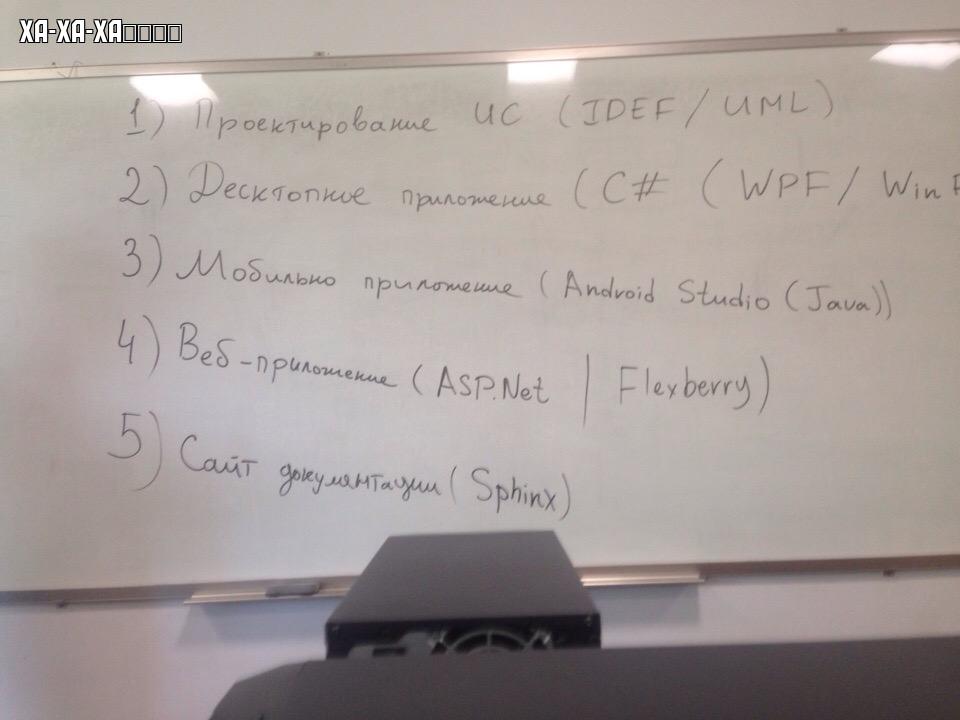 ХА-ХА-ХА
1) Проектирование ИС (IDEF / UML)
2) Десктопное приложение (C# ( WPF / Win F
3) Мобильно приложение (Android Studio (Java))
4) Веб-приложение (ASP.Net | Flexberry)
5) Сайт документации (Sphinx)